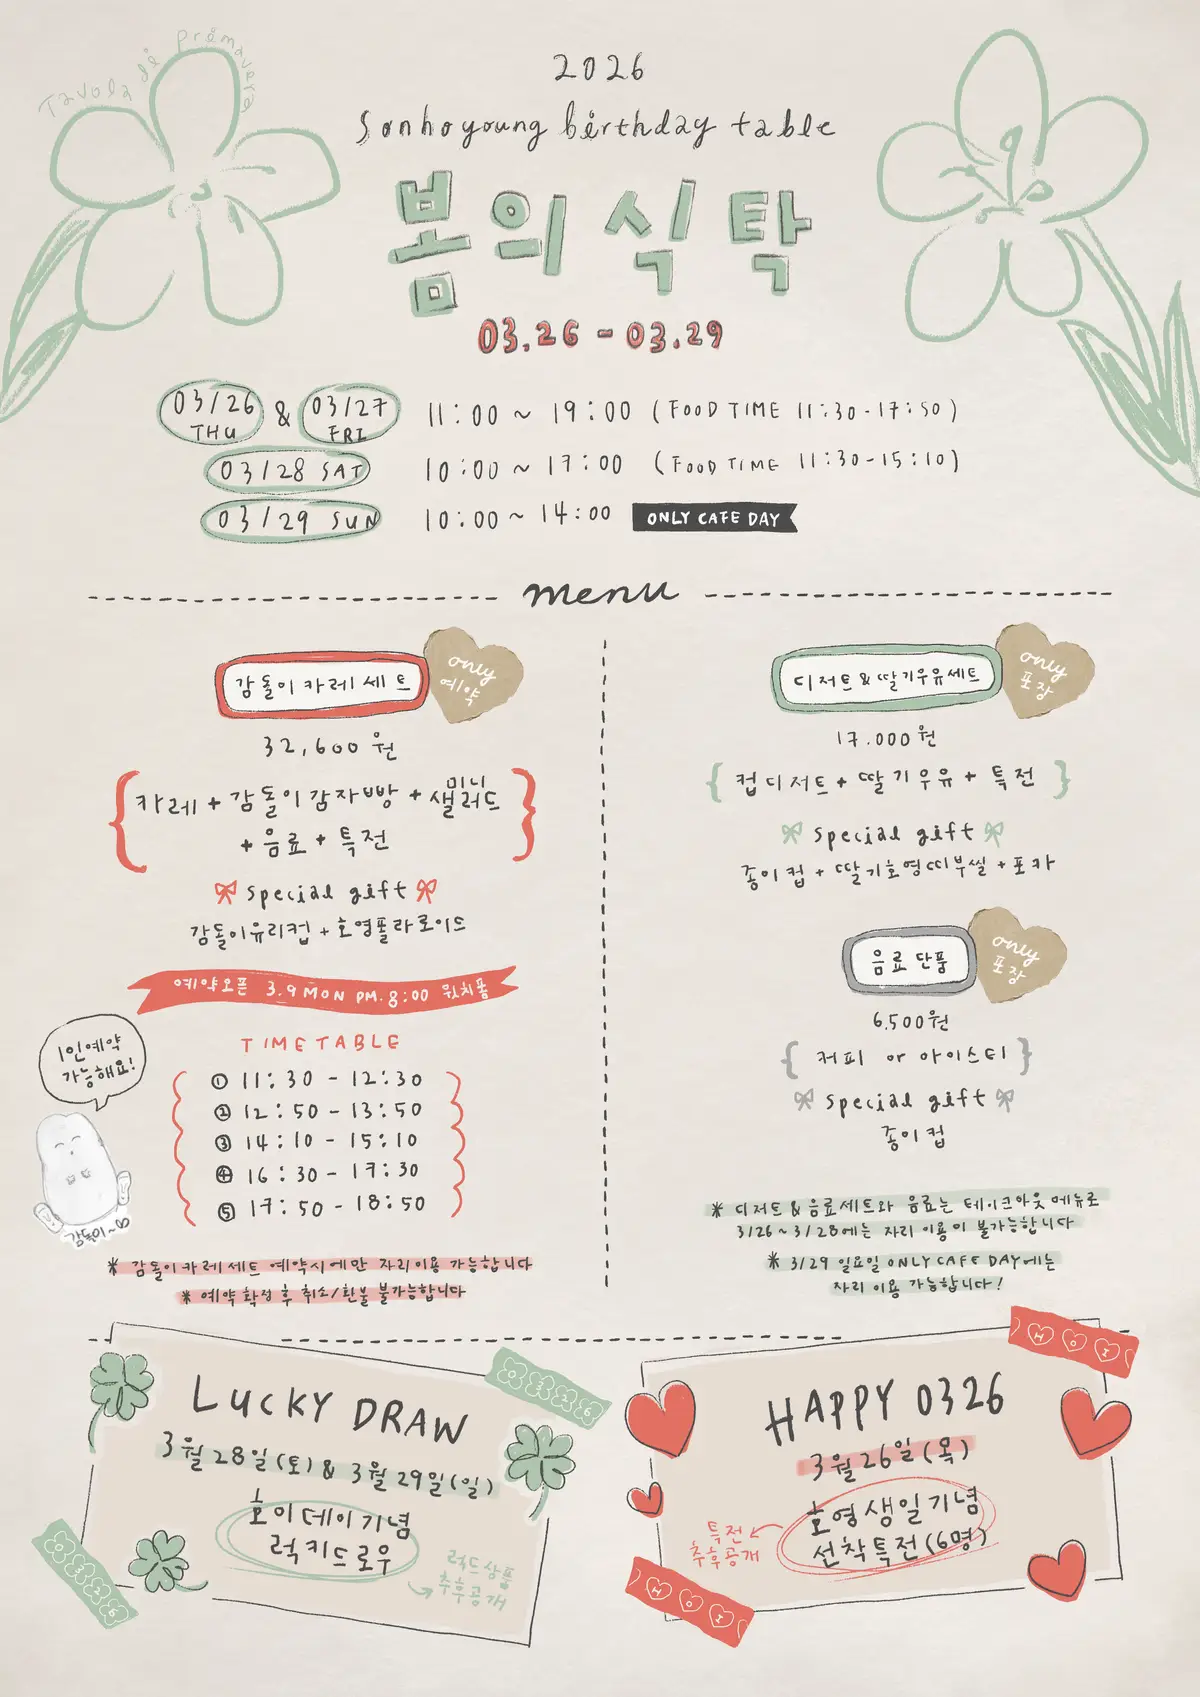 Tavola di Primavera
2026
Sonhoyoung birthday table
봄의 식탁
03.26 - 03.29
03/26 THU & 03/27 FRI 11:00 ~ 19:00 (FOOD TIME 11:30-17:50)
03/28 SAT 10:00 ~ 17:00 (FOOD TIME 11:30-15:10)
03/29 SUN 10:00 ~ 14:00 ONLY CAFE DAY
menu
감돌이 카레 세트
only 예약
32,600 원
카레 + 감돌이감자빵 + 미니샐러드
+ 음료 + 특전
special gift
감돌이유리컵 + 호영폴라로이드
예약오픈 3.9 MON PM.8:00 윗치폼
TIME TABLE
① 11:30 - 12:30
② 12:50 - 13:50
③ 14:10 - 15:10
④ 16:30 - 17:30
⑤ 17:50 - 18:50
1인예약
가능해요!
감돌이~∞
* 감돌이 카레 세트 예약시에만 자리이용 가능합니다
* 예약 확정 후 취소/환불 불가능합니다
디저트 & 딸기우유세트
only 포장
17.000원
컵디저트 + 딸기우유 + 특전
special gift
종이컵 + 딸기호영띠부씰 + 포카
음료 단품
only 포장
6,500원
커피 or 아이스티
special gift
종이컵
* 디저트 & 음료세트와 음료는 테이크아웃 메뉴로
3/26~3/28에는 자리 이용이 불가능합니다
* 3/29 일요일 ONLY CAFE DAY에는
자리 이용 가능합니다!
LUCKY DRAW
3월 28일(토) & 3월 29일(일)
호이데이기념
럭키드로우
럭드상품
추후공개
0326
0326
HAPPY 0326
3월 26일(목)
호영생일기념
선착특전(6명)
특전
추후공개
HOI
HOI